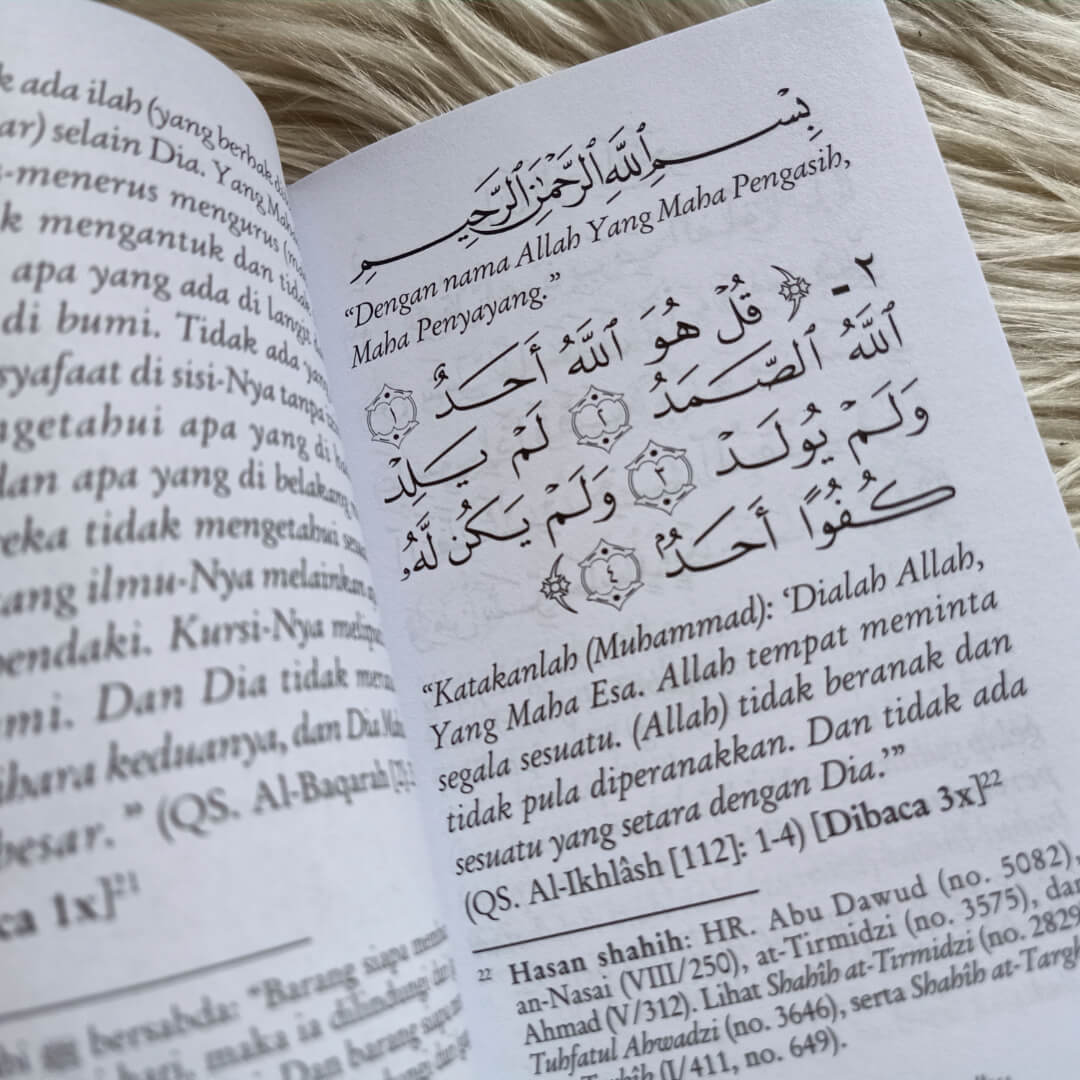 ada ilah (yang berhak
selain Dia. Yang
menerus mengurus
mengantuk dan
apa yang ada di langit
di bumi. Tidak ada yang
syafaat di sisi-Nya tanpa
apa yang di
dan apa yang di belakang
tidak mengetahui
ilmu-Nya melainkan
Kursi-Nya
Dan Dia tidak
keduanya, dan Dia
” (QS. Al-Baqarah [2]:
1x]²¹
ﷺ bersabda: “Barang siapa
hari, maka ia dilindungi dari
Dan barang siapa
بِسْمِ اللَّهِ الرَّحْمَٰنِ الرَّحِيمِ
“Dengan nama Allah Yang Maha Pengasih,
Maha Penyayang.”
٢ - ﴿ قُلْ هُوَ اللَّهُ أَحَدٌ ۝١
اللَّهُ الصَّمَدُ ۝٢ لَمْ يَلِدْ
وَلَمْ يُولَدْ ۝٣ وَلَمْ يَكُن لَّهُۥ
كُفُوًا أَحَدٌۢ ۝٤ ﴾
“Katakanlah (Muhammad): ‘Dialah Allah,
Yang Maha Esa. Allah tempat meminta
segala sesuatu. (Allah) tidak beranak dan
tidak pula diperanakkan. Dan tidak ada
sesuatu yang setara dengan Dia.’”
(QS. Al-Ikhlâsh [112]: 1-4) [Dibaca 3x]²²
22 Hasan shahih: HR. Abu Dawud (no. 5082),
an-Nasai (VIII/250), at-Tirmidzi (no. 3575), dan
Ahmad (V/312). Lihat Shahîh at-Tirmidzi (no. 2829
Tuhfatul Ahwadzi (no. 3646), serta Shahîh at-Targh
(I/411, no. 649).